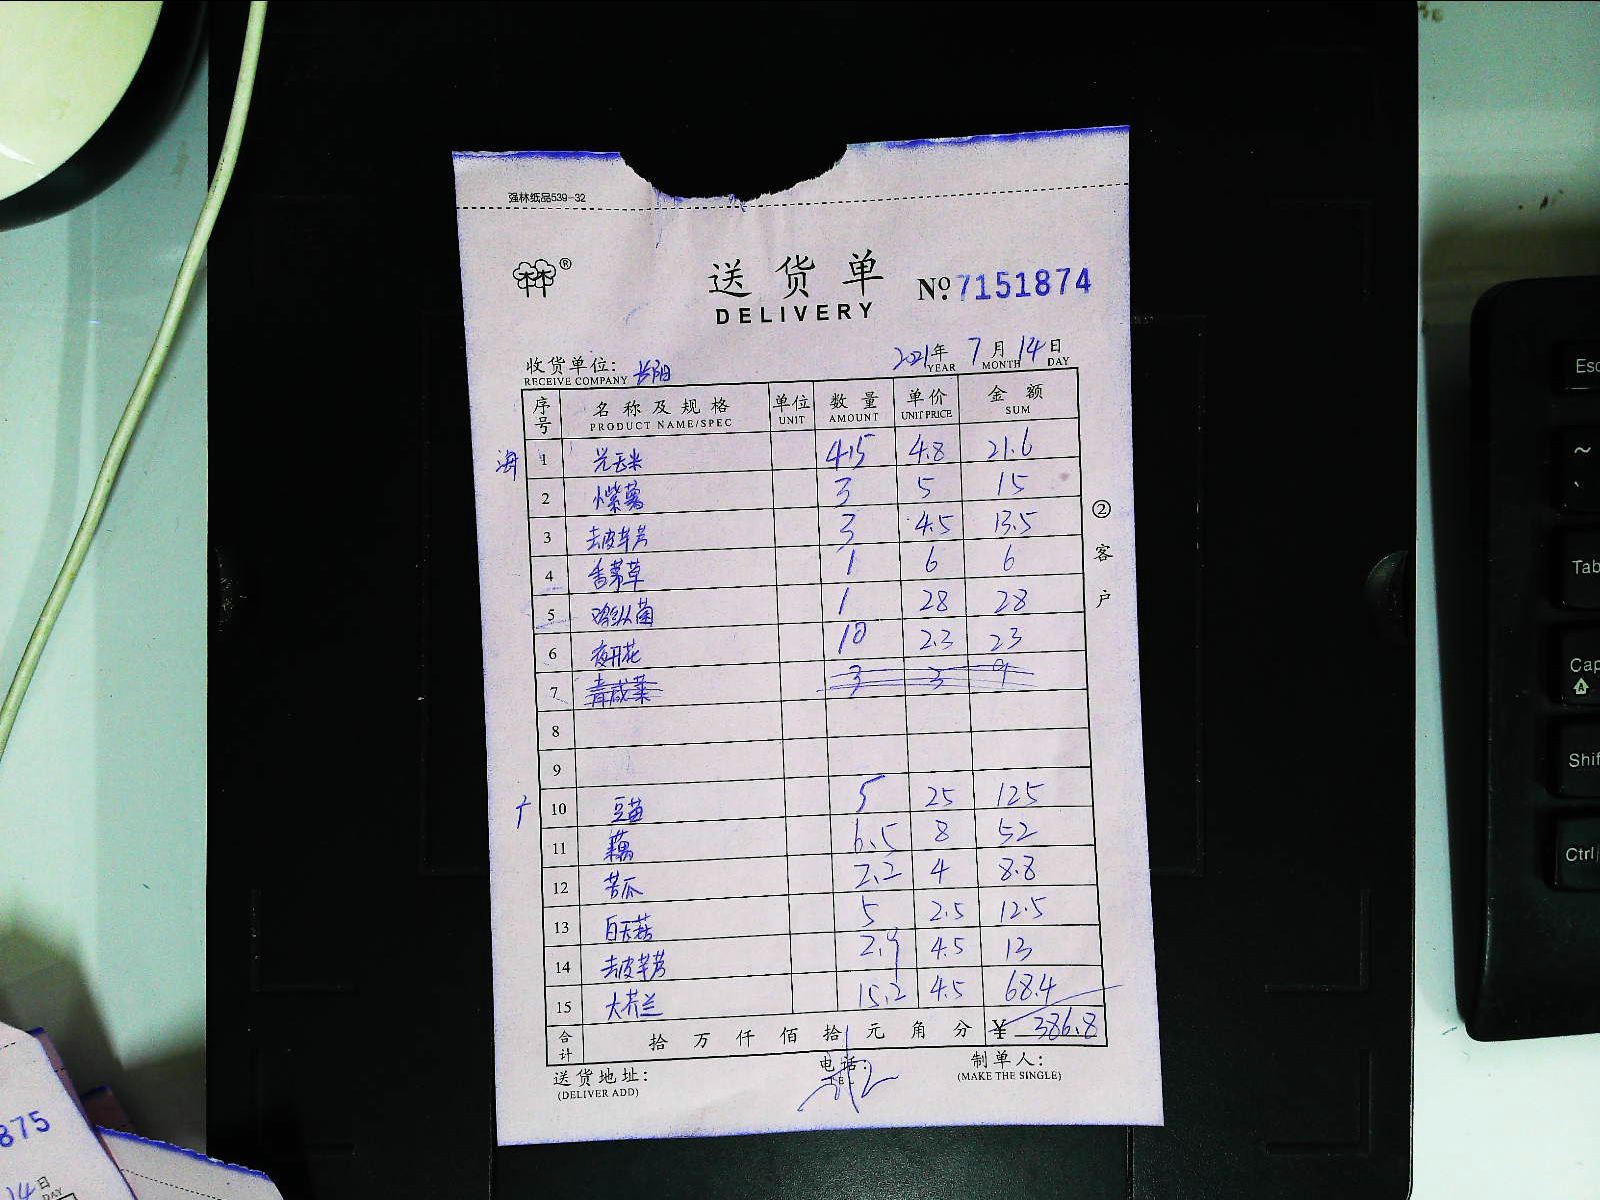 强林纸品539-32
®
送货单
DELIVERY
No. 7151874
收货单位: 长阳
RECEIVE COMPANY
2021年 7月 14日
YEAR MONTH DAY
序号 名称及规格 单位 数量 单价 金额
PRODUCT NAME/SPEC UNIT AMOUNT UNIT PRICE SUM
海 1 光玉米 4.5 4.8 21.6
2 小紫薯 3 5 15
3 去皮芋艿 3 4.5 13.5
4 香茅草 1 6 6
5 鸡纵菌 1 28 28
6 夜开花 10 2.3 23
7 青咸菜 3 3 9
8
9
10 豆苗 5 25 125
11 藕 6.5 8 52
12 苦瓜 2.2 4 8.8
13 白玉菇 5 2.5 12.5
14 去皮芋艿 2.9 4.5 13
15 大芥兰 15.2 4.5 68.4
合计 拾 万 仟 佰 拾 元 角 分 ¥ 386.8
送货地址: 电话: 制单人:
(DELIVER ADD) TEL (MAKE THE SINGLE)
②客户
875
14日
DAY
Esc
~
Tab
Cap
Shif
Ctrl